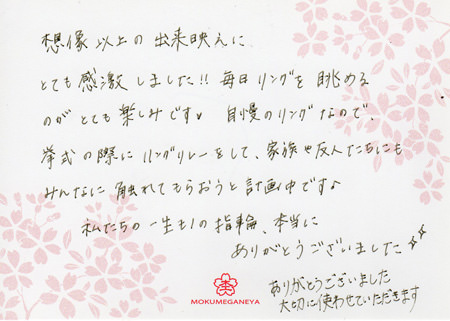 想像以上の出来映えに、
とても感激しました!! 毎日リングを眺める
のがとても楽しみです♪ 自慢のリングなので、
挙式の際にリングリレーをして、家族や友人たちにも
みんなに触れてもらおうと計画中です♪
私たちの一生もの指輪、本当に
ありがとうございました
ありがとうございました
大切に使わせていただきます
MOKUMEGANEYA